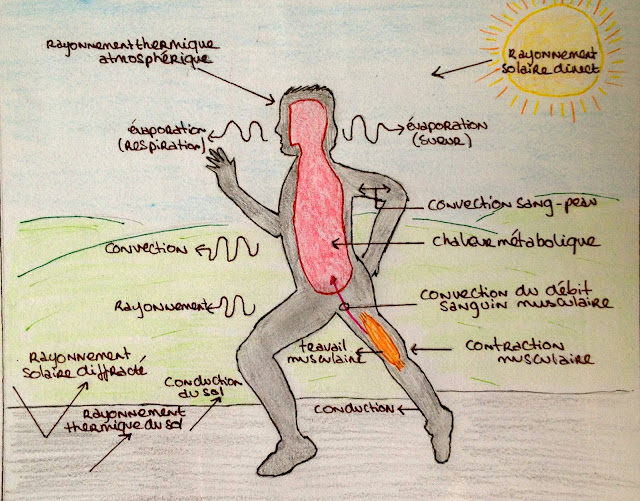 Rayonnement thermique
atmosphérique
Rayonnement
solaire direct
évaporation
(Respiration)
évaporation
(sueur)
convection sang-peau
convection
chaleur métabolique
Rayonnement
convection du débit
sanguin musculaire
travail
musculaire
contraction
musculaire
Rayonnement
solaire diffracté
conduction
du sol
Rayonnement
thermique du sol
conduction